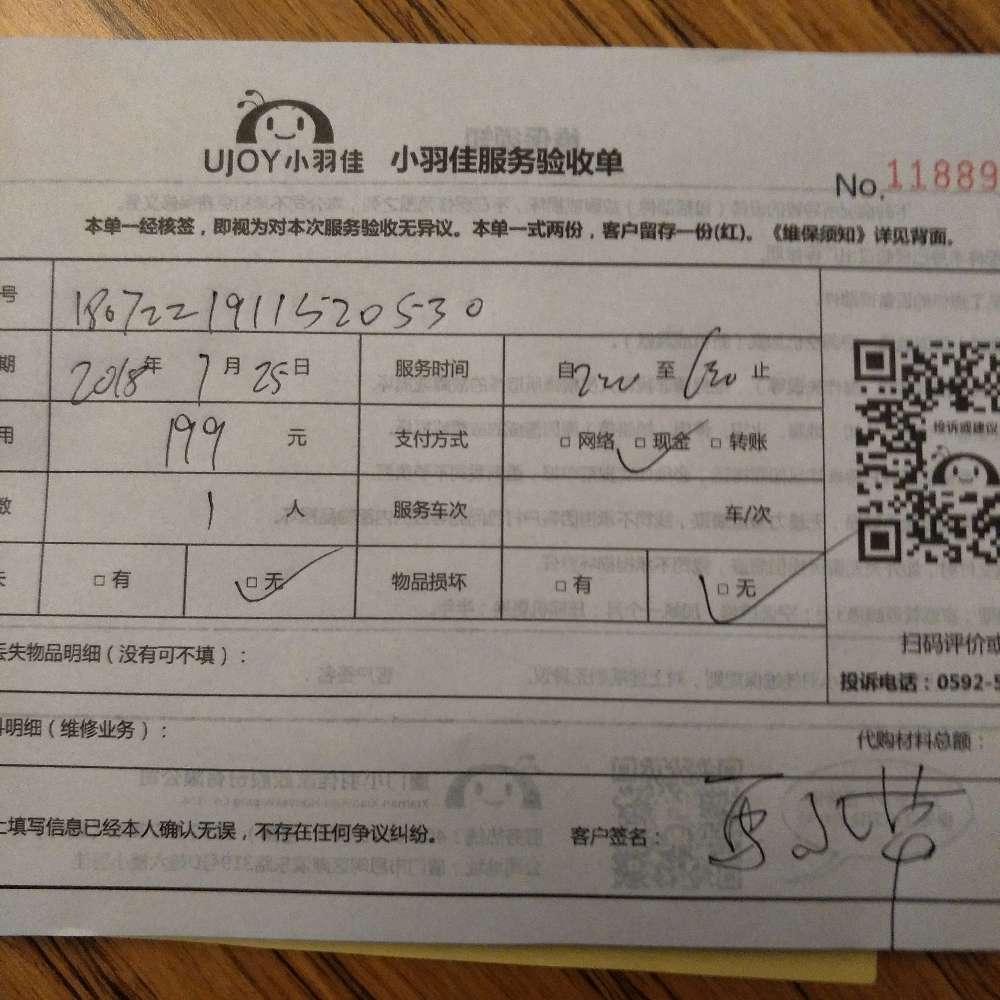 UJOY小羽佳 小羽佳服务验收单
No.11889
本单一经核签，即视为对本次服务验收无异议。本单一式两份，客户留存一份(红)。《维保须知》详见背面。
号 1867221911520530
期 2018年 7月 25日 服务时间 自 至 止
用 199 元 支付方式 □ 网络 □ 现金 □ 转账
数 1 人 服务车次 车/次
□ 有 □ 无 物品损坏 □ 有 □ 无
投诉或建议
扫码评价或
投诉电话：0592-5
丢失物品明细（没有可不填）：
料明细（维修业务）： 代购材料总额：
上填写信息已经本人确认无误，不存在任何争议纠纷。 客户签名：